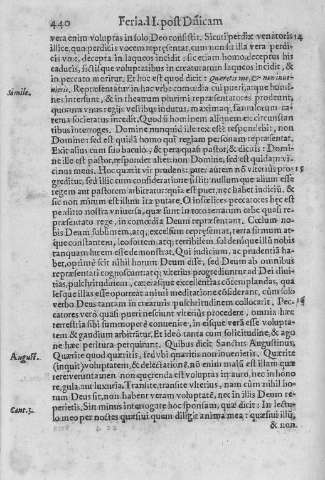 440 Feria.II. post Dñicam
vera enim voluptas in solo Deo consistit. Sicut perdix venatoris 14
illice, qua perdicis vocem representat, cum non sit illa vera perdi-
cis vox, decepta in laqueos incidit, sic etiam homo, deceptus his
caducis, fictisque voluptatibus in creaturarum laqueos incidit, &
in peccato moritur. Et hoc est quod dicit: Quæretis me, & non inue-
Simile. nietis. Repræsentatur in hac vrbe comœdia cui pueri, atque homi-
nes intersunt, & in theatrum primi representatores prodeunt,
quorum vnus regijs vestibus indutus, maxima famulorum ca-
terua societatus incedit. Quod si hominem aliquem ex circunstan
tibus interroges, Domine nunquid iste rex est? respondebit, non
Domine: sed est quidã homo qui regiam personam representat.
Exit alius cum suo baculo, & pera quasi pastor, & dicis: Domi-
ne ille est pastor, respondet alter: non Domine, sed est quidam vi-
cinus meus. Hoc quantũ vir prudens: puer autem nõ vlterius pro- 15
greditur, sed illic cum consideratione sistit: nullumque alium esse
regem aut pastorem arbitratur: quia est puer, nec habet iudiciũ, &
sic non mirum est illum ita putare. O infœlices peccatores hæc est
Deum sublimem, atq; excelsum repræsentat, terra firmum at-
que constantem, leo fortem, atq; terribilem, sol densque illũ nobis
tanquam lucem esse demonstrat. Qui iudicium, ac prudentiã ha-
bet, optimè scit nihil horum Deum esse, sed Deum ab omnibus
repræsentati cognoscunt: atq; vlterius progrediuntur ad Dei diui-
tias, pulchritudinem, cæterasque excellentias cõtemplandas, qua
verbo Deus tantam in creaturis pulchritudinem collocarit. Pec- 16
catores verò quasi pueri nesciunt vlterius procedere, omnia hæc
terrestria sibi summopere conuenire, in eisque verã esse volupta-
tem & gaudium arbitratur. Et ideò tanta cum solicitudine, & ago
ne hæc peritura perquirunt. Quibus dicit Sanctus Augustinus,
August. Quærite quod quæritis, sed vbi quæritis non inuenietis. Quærite
(inquit) voluptatem, & delectationẽ, nõ enim malũ est illam quæ
rere: veruntamen non quærenda est voluptas in auro, nec in hono
re, gula, aut luxuria. Transite, transite vlterius, nam cùm nihil ho-
rum Deus sit, non habent veram voluptatẽ, nec in illis Deum re-
Cant.3. perietis. Sin minus interrogate hoc sponsam, quæ dicit: In lectu-
lo meo per noctes quæsiui quem diligit anima mea: quæsiui illũ,
& non.